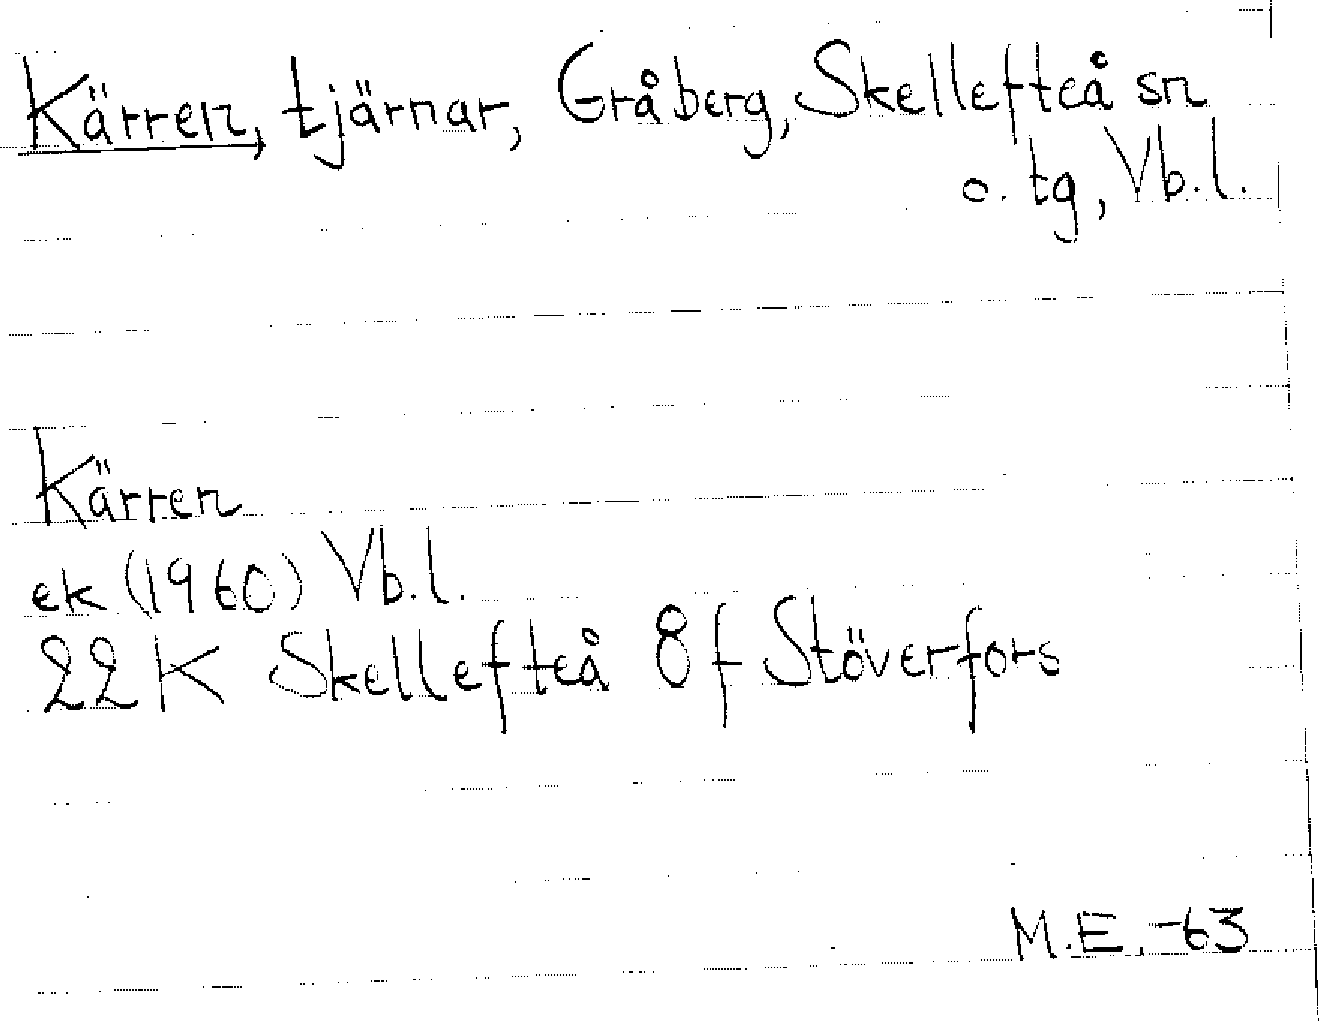 Kärren, tjärnar, Gråberg, Skellefteå sn
o. tg, Vb.l.
Kärren
ek (1960) Vb.l.
22K Skellefteå 8f Stöverfors
M.E. -63